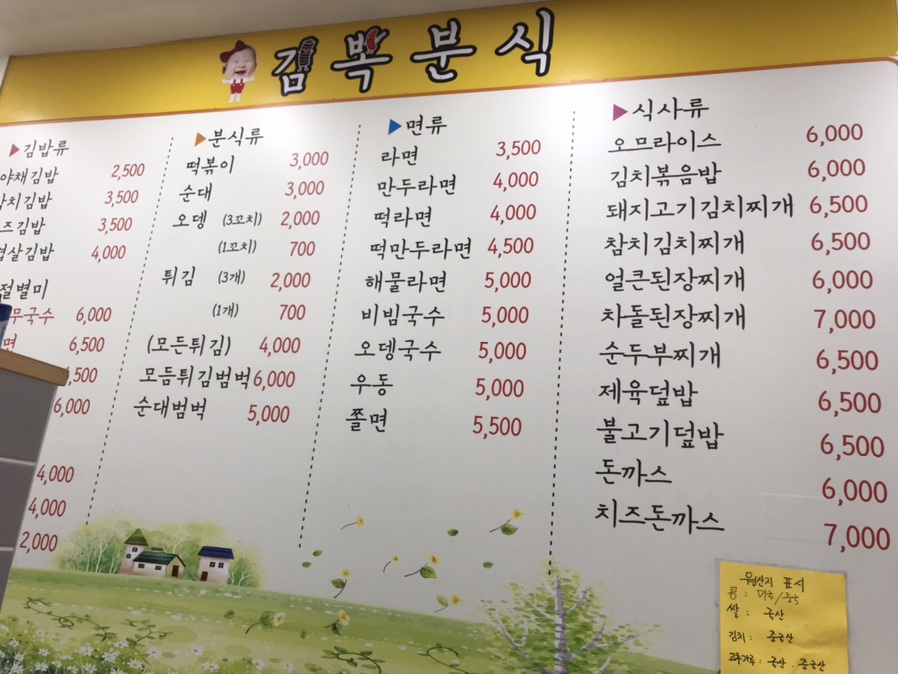 김뽁분식
▶김밥류
야채김밥 2,500
참치김밥 3,500
치즈김밥 3,500
김밥 4,000
계절별미
국수 6,000
면 6,500
,500
6,000
4,000
4,000
2,000
▶분식류
떡볶이 3,000
순대 3,000
오뎅 (3꼬치) 2,000
(1꼬치) 700
튀김 (3개) 2,000
(1개) 700
(모든튀김) 4,000
모듬튀김범벅 6,000
순대범벅 5,000
▶면류
라면 3,500
만두라면 4,000
떡라면 4,000
떡만두라면 4,500
해물라면 5,000
비빔국수 5,000
오뎅국수 5,000
우동 5,000
쫄면 5,500
▶식사류
오므라이스 6,000
김치볶음밥 6,000
돼지고기김치찌개 6,500
참치김치찌개 6,500
얼큰된장찌개 6,000
차돌된장찌개 7,000
순두부찌개 6,500
제육덮밥 6,500
불고기덮밥 6,500
돈까스 6,000
치즈돈까스 7,000
원산지 표시
콩 : 미국/중국
쌀 : 국산
김치 : 중국산
고추가루 : 국산 . 중국산